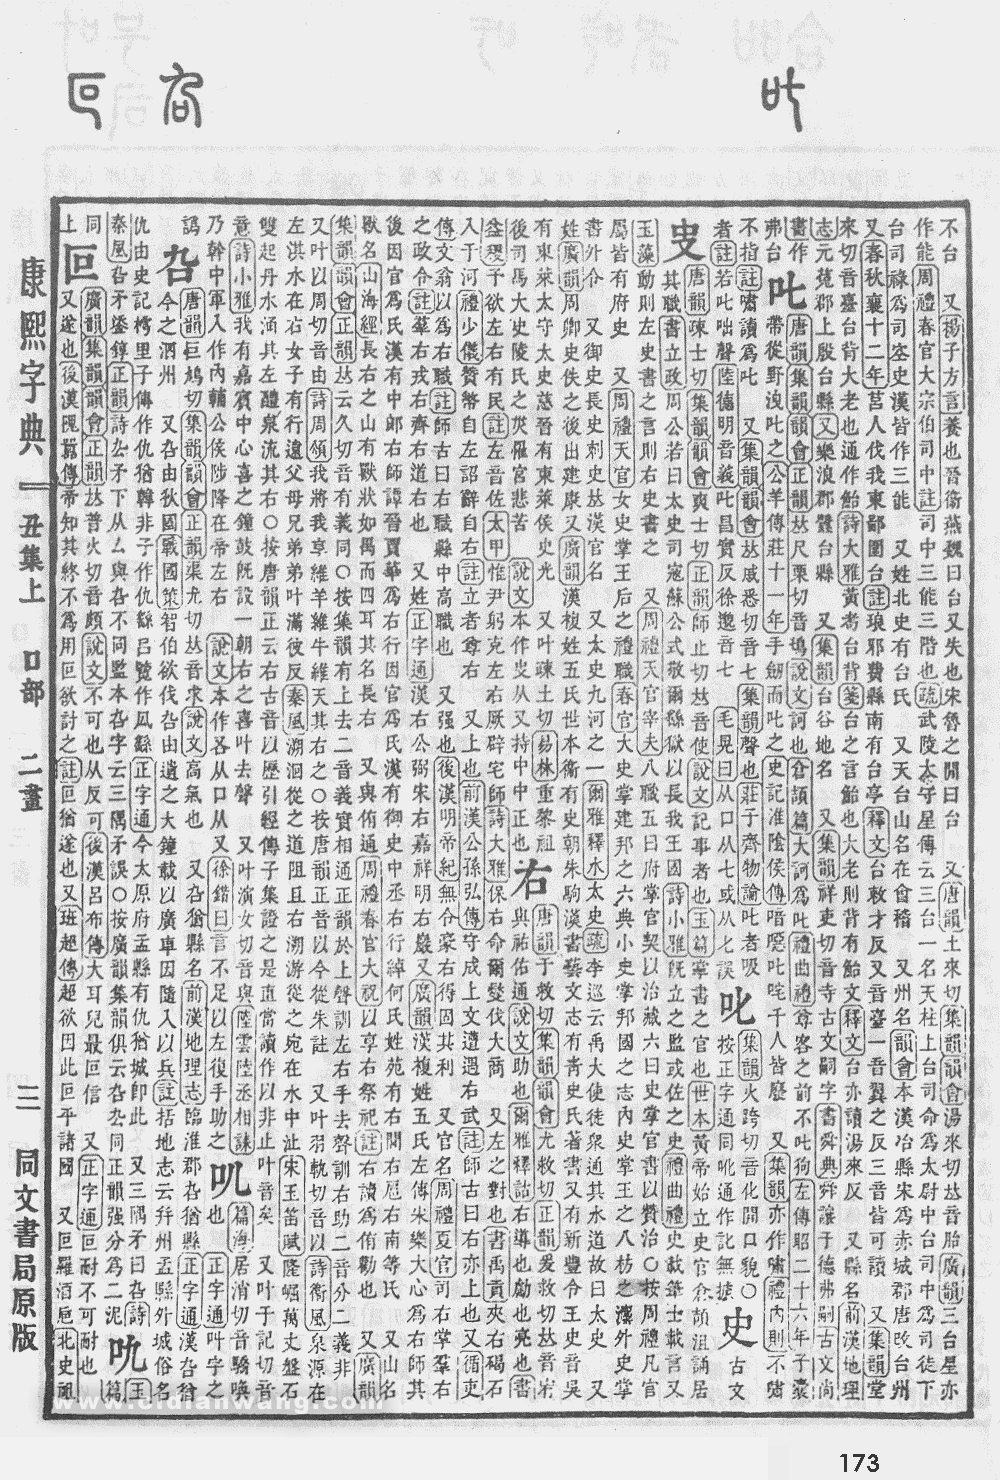 173
不台　又揚子方言養也晉衞燕魏曰台又失也宋魯之閒曰台　又唐韻土來切集韻韻會湯來切𠀤音胎廣韻三台星亦
作能周禮春官大宗伯司中註司中三能三階也疏武陵太守星傳云三台一名天柱上台司命爲太尉中台司中爲司徒下
台司祿爲司空史漢皆作三能　又姓北史有台氏　又天台山名在會稽　又州名韻會本漢冶縣宋爲赤城郡唐改台州
又春秋襄十二年莒人伐我東鄙圍台註琅邪費縣南有台亭釋文台敕才反又音臺一音翼之反三音皆可讀　又集韻堂
來切音臺台背大老也通作鮐詩大雅黃耇台背箋台之言鮐也大老則背有鮐文釋文台亦讀湯來反　又縣名前漢地理
志元菟郡上殷台縣又樂浪郡蠶台縣　又集韻台谷地名　又集韻祥吏切音寺古文嗣字書舜典舜讓于德弗嗣古文尚
書作
弗台
叱
唐韻集韻韻會正韻𠀤尺栗切音鴟說文訶也倉頡篇大訶爲叱禮曲禮尊客之前不叱狗左傳昭二十六年子囊
帶從野洩叱之公羊傳莊十一年手劒而叱之史記淮陰侯傳喑噁叱咤千人皆廢　又集韻亦作嘯禮內則不嘯
不指註嘯讀爲叱　又集韻韻會𠀤戚悉切音七集韻聲也莊子齊物論叱者吸
者註若叱咄聲陸德明音義叱昌實反徐邈音七　毛晃曰从口从七或从匕誤
𠮟
集韻火跨切音化開口貌○
按正字通同吪通作訛無據
史
古文
㕜
唐韻疎士切集韻韻會爽士切正韻師止切𠀤音使說文記事者也玉篇掌書之官也世本黃帝始立史官倉頡沮誦居
其職書立政周公若曰太史司寇蘇公式敬爾繇獄以長我王國詩小雅旣立之監或佐之史禮曲禮史載筆士載言又
玉藻動則左史書之言則右史書之　又周禮天官宰夫八職五曰府掌官契以治藏六曰史掌官書以贊治○按周禮凡官
屬皆有府史　又周禮天官女史掌王后之禮職春官大史掌建邦之六典小史掌邦國之志內史掌王之八枋之灋外史掌
書外令　又御史長史刺史𠀤漢官名　又太史九河之一爾雅釋水太史疏李巡云禹大使徒衆通其水道故曰太史　又
姓廣韻周卿史佚之後出建康又廣韻漢複姓五氏世本衞有史朝朱駒漢書藝文志有靑史氏著書又有新豐令王史音吳
有東萊太守太史慈晉有東萊侯史光　又叶疎土切易林重黎祖
後司馬大史陵氏之災雁宮悲苦　說文本作㕜从又持中中正也
右
唐韻于救切集韻韻會尤救切正韻爰救切𠀤音宥
與祐佑通說文助也爾雅釋詁右導也勴也亮也書
益稷予欲左右有民註左音佐太甲惟尹躬克左右厥辟宅師詩大雅保右命爾燮伐大商　又左之對也書禹貢夾右碣石
入于河禮少儀贊幣自左詔辭自右註立者尊右　又上也前漢公孫弘傳守成上文遭遇右武註師古曰右亦上也又循吏
傳文翁以爲右職註師古曰右職縣中高職也　又强也後漢明帝紀無令豪右得固其利　又官名周禮夏官司右掌羣右
之政令註羣右戎右齊右道右也　又姓正字通漢右公弼宋右嘉祥明右巖又廣韻漢複姓五氏左傳宋樂大心爲右師其
後因官爲氏漢有中郎右師譚晉賈華爲右行因官爲氏漢有御史中丞右行綽何氏姓苑有右閭右扈右南等氏　又山名
獸名山海經長右之山有獸狀如禺而四耳其名長右　又與侑通周禮春官大祝以享右祭祀註右讀爲侑勸也　又廣韻
集韻韻會正韻𠀤云久切音有義同○按集韻有上去二音義實相通正韻於上聲訓左右手去聲訓右助二音分二義非
又叶以周切音由詩周頌我將我享維羊維牛維天其右之○按唐韻正音以今從朱註　又叶羽軌切音以詩衞風泉源在
左淇水在右女子有行遠父母兄弟弟叶滿彼反秦風溯洄從之道阻且右溯游從之宛在水中沚宋玉笛賦隆崛萬丈盤石
雙起丹水涌其左醴泉流其右○按唐韻正云右古音以歷引經傳子集證之是直當讀作以非止叶音矣　又叶于記切音
意詩小雅我有嘉賓中心喜之鐘鼓旣設一朝右之喜叶去聲　又叶演女切音與陸雲陸丞相誄
乃幹中軍入作內輔公侯陟降在帝左右　說文本作㕛从口从又徐鍇曰言不足以左復手助之
篇海居消切音驕喚
也　正字通叫字之
譌
叴
唐韻巨鳩切集韻韻會正韻渠尤切𠀤音求說文高氣也　又叴猶縣名前漢地理志臨淮郡叴猶縣正字通漢叴猶
今之泗州　又叴由狄國戰國策智伯欲伐叴由遺之大鐘載以廣車因隨入以兵註括地志云幷州盂縣外城俗名
仇由史記樗里子傳作仇猶韓非子作仇繇呂覽作夙繇正字通今太原府盂縣有仇猶城卽此　又三隅矛曰叴詩
秦風叴矛鋈錞正韻詩厹矛下从厶與叴不同監本叴字云三隅矛誤○按廣韻集韻俱云叴厹同正韻强分爲二泥
玉
篇
同
上
叵
廣韻集韻韻會正韻𠀤普火切音頗說文不可也从反可後漢呂布傳大耳兒最叵信　又正字通叵耐不可耐也
又遂也後漢隗囂傳帝知其終不爲用叵欲討之註叵猶遂也又班超傳超欲因此叵平諸國　又叵羅酒巵北史祖
康熙字典　丑集上　口部　二畫　三　同文書局原版
www.cidianwang.com